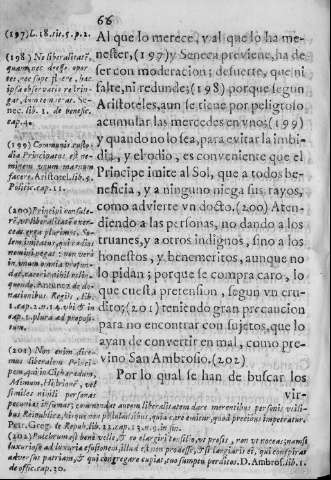 66
(197) L. 18. tit. 5. p. 2.
(198) Ne liberalitatẽ,
quam nec deesse opor-
tet, nec superfluere, hæc
ipsa observatio restrin-
gat, dum temperat. Se-
nec. lib. 1. de benefic.
cap.
(199) Communis custo-
dia Principatus est ne-
minem unum magnum
facere. Aristotel. lib. 5.
Politic. cap. 11.
(200) Principi consule-
re, ut liberalitatem exer-
ceat erga plurimos, So-
lem imitatur, qui radios
nemini negat; non verò
in unum omnia effun-
dat, cæteris nihil relin-
quendo. de do-
nationibus Regiis, lib.
1. cap. 2. n. 14. ubi & in
cap. 1. plura ad proposi-
tum.
(201) Non enim dice-
mus liberalem Princi-
pem qui in Citharœdum,
Mimum, Histrionẽ, vel
similes viriles personas
pecunias insumat; commendat autem liberalitatem dare merentibus personis vilibus
Reipublicæ, his qui non postulassent, quia carè emitur, quod precibus impetratur.
Patr. Greg. de Repub. lib. 23. cap. 13. n. 9. in fin.
(202) Pulchrum est bene velle, & eo largiri consilio, ut prosis, non ut noceas; namsi
luxurioso ad luxuriæ effusionem, illud est non prodesse, & si largiaris ei, qui conspirat
adversus patriam, & qui congregare cupiat, tuo sumptu perditos. D. Ambros. lib. 1.
de offic. cap. 30.
Al que lo merece, y al que lo ha me-
nester, (197) y Seneca previene, ha de
ser con moderacion; de suerte, que ni
falte, ni redunde; (198) porque segun
Aristoteles, aun se tiene por peligroso
acumular las mercedes en uno; (199)
y quando no lo sea, para evitar la imbi-
dia, y el odio, es conveniente que el
Principe imite al Sol, que a todos be-
neficia, y a ninguno niega sus rayos,
como advierte vn docto. (200) Aten-
diendo a las personas, no dando a los
truanes, y a otros indignos, sino a los
honestos, y benemeritos, aunque no
lo pidan; porque se compra caro, lo
que cuesta pretension, segun vn eru-
dito; (201) teniendo gran precaucion
para no encontrar con sujetos, que lo
ayan de convertir en mal, como pre-
vino San Ambrosio. (202)
Por lo qual se han de buscar los
vir-